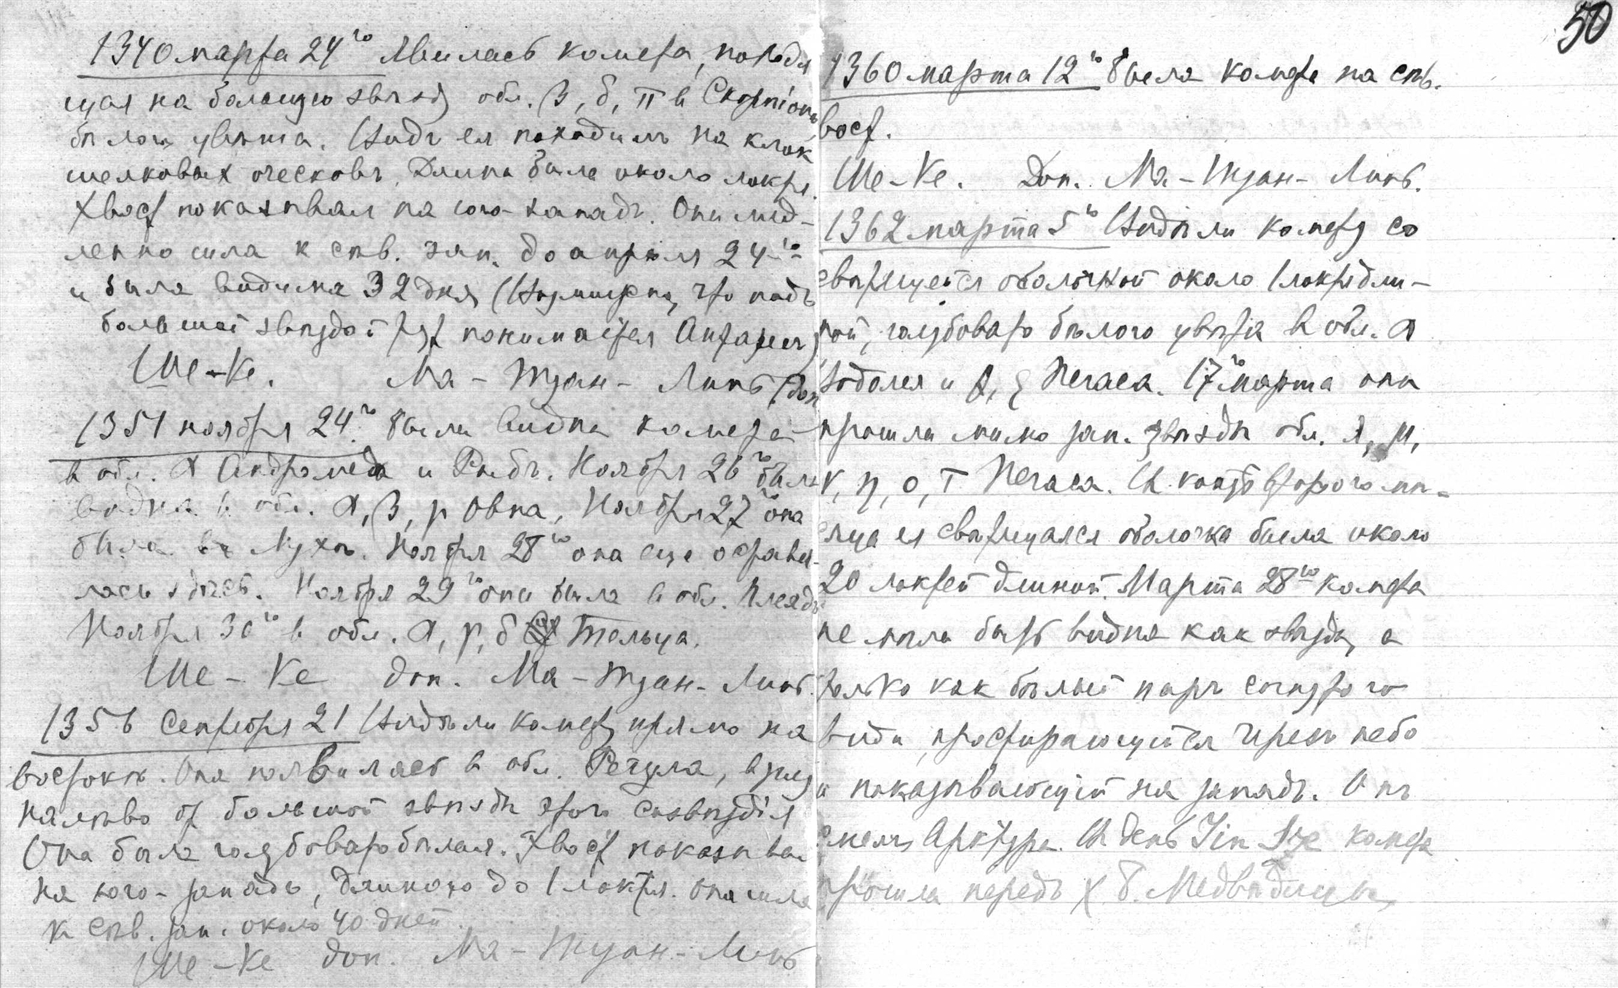 1340 марта 24го Явилась комета, походя
щая на большую звѣзду обл. β, δ, π в Скорпіонѣ
бѣлого цвѣта. Видъ ея походилъ на клок
шелковых оческовъ. Длина была около локтя.
Хвост показывал на юго-западъ. Она мед-
ленно шла к сѣв. зап. до апрѣля 24го
и была видима 32 дня (Вурмизер, что подъ
большой звѣздой тут понимается Антарес)
Ше-Ке. Ма-Туан-Линь доп
1351 ноября 24го была видна комета
в обл. α Андромеды и Рыбъ. Ноября 26го была
видна в обл. α, β, γ Овна, Ноября 27го она
была въ Мухѣ. Ноября 28го она еще остава-
лась здѣсь. Ноября 29го она была в обл. Плеядъ
Ноября 30го в обл. α, γ, δ Тельца.
Ше-Ке доп. Ма-Туан-Линь.
1356 Сентября 21 Видѣли комету прямо на
востокѣ. Она появилась в обл. Регула,
налѣво от большой звѣзды этого созвѣздія
Она была голубовато бѣлая. Хвост показывал
на юго-западъ, длиною до 1 локтя. Она шла
к сѣв. зап. около 40 дней.
Ше-Ке доп. Ма-Туан-Линь
50
1360 марта 12го была комета на сѣв.
вост.
Ше-Ке. Доп. Ма-Туан-Линь.
1362 марта 5го Видѣли комету со
свѣтящейся оболочкой около 1 локтя дли-
ной, голубовато бѣлого цвѣта в обл. α
Водолея и θ, ζ Пегаса. 17го марта она
прошла мимо зап. звѣзды обл. λ, μ,
ν, η, ο, τ Пегаса. В концѣ второго мѣ-
сяца ея свѣтящаяся оболочка была около
20 локтей длиной. Марта 28го комета
не могла быть видна как звѣзда, а
только как бѣлый паръ согнутого
вида, простирающійся чрезъ небо
и показывающій на западъ. Онъ
Арктура. В день Jin комета
прошла передъ χ Б. Медвѣдицы